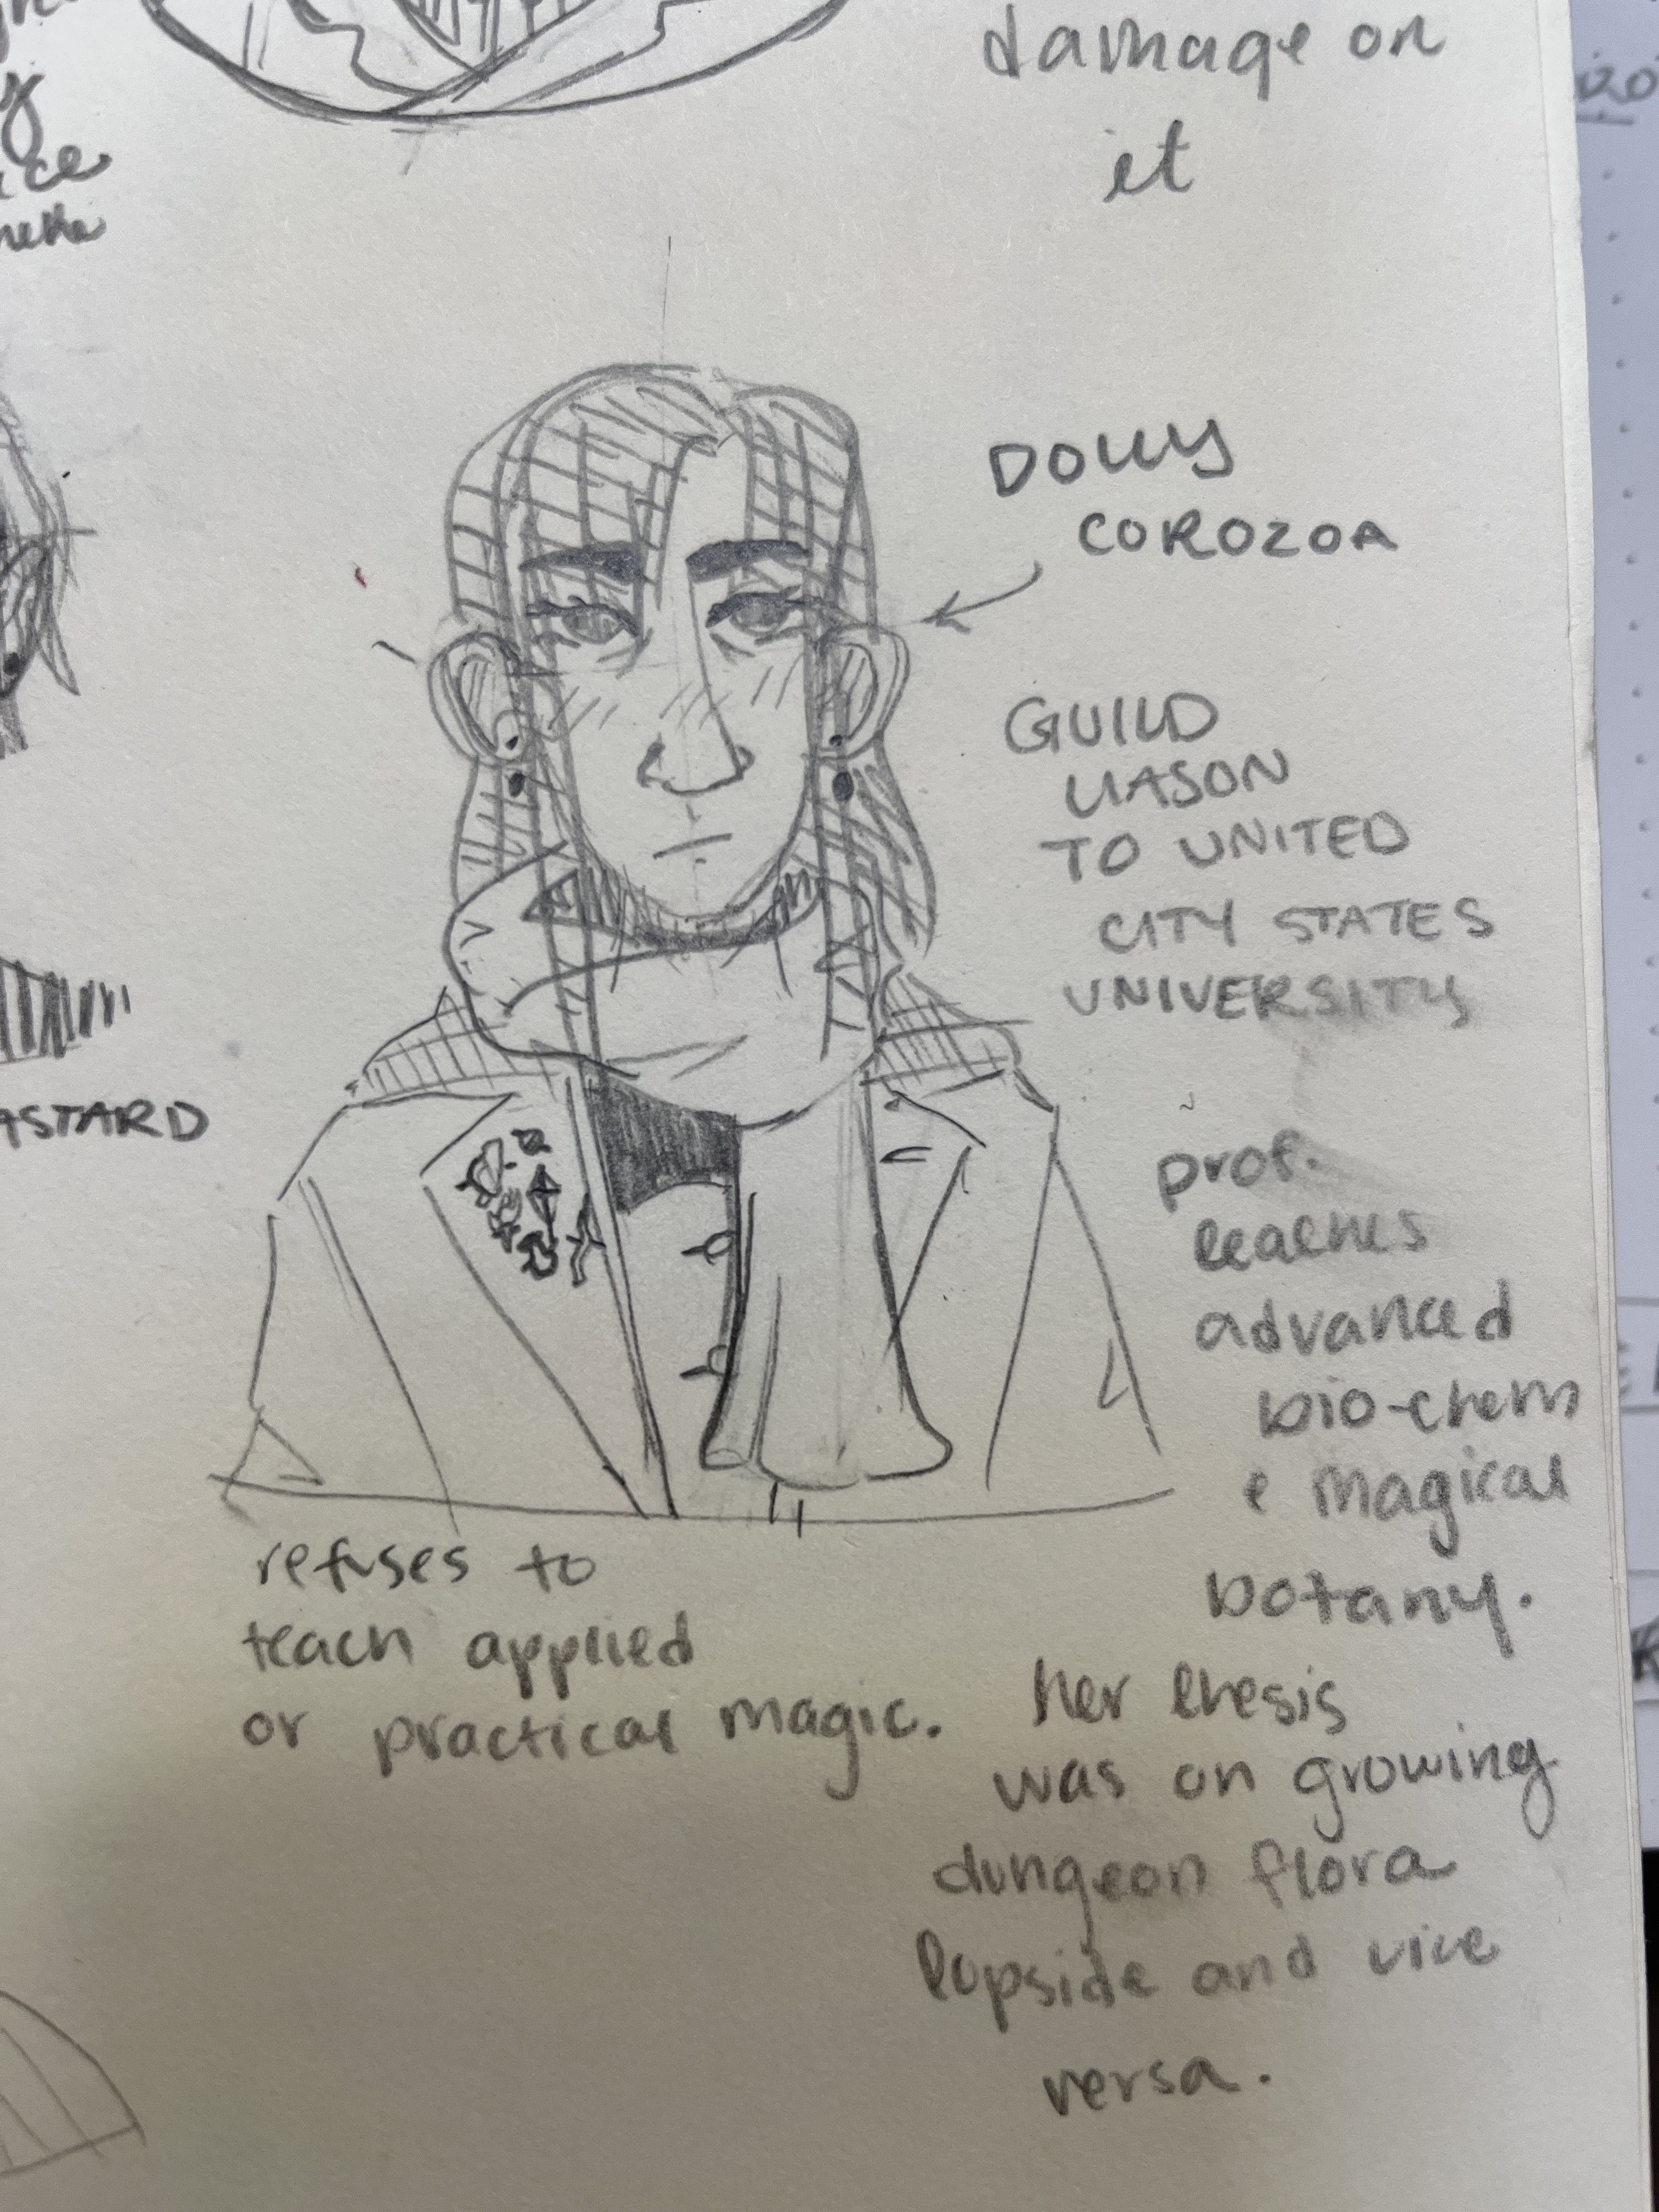 damage on
it
DOLLY
COROZOA
GUILD
LIASON
TO UNITED
CITY STATES
UNIVERSITY
prof.
teaches
advanced
bio-chem
& magical
botany.
refuses to
teach applied
or practical magic.
her thesis
was on growing
dungeon flora
topside and vice
versa.